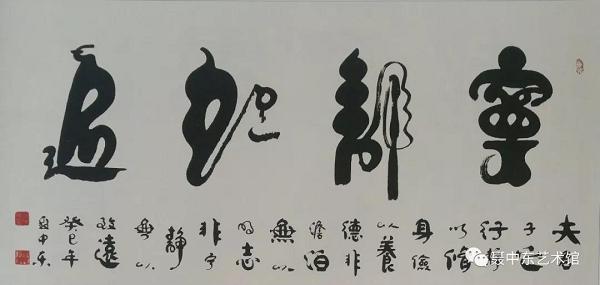 寧靜致遠
夫君
子之
行静
以修
身儉
以養
德非
澹泊
無以
明志
非宁
静
無以
致遠
癸巳年
聂中东
聂中东艺术馆